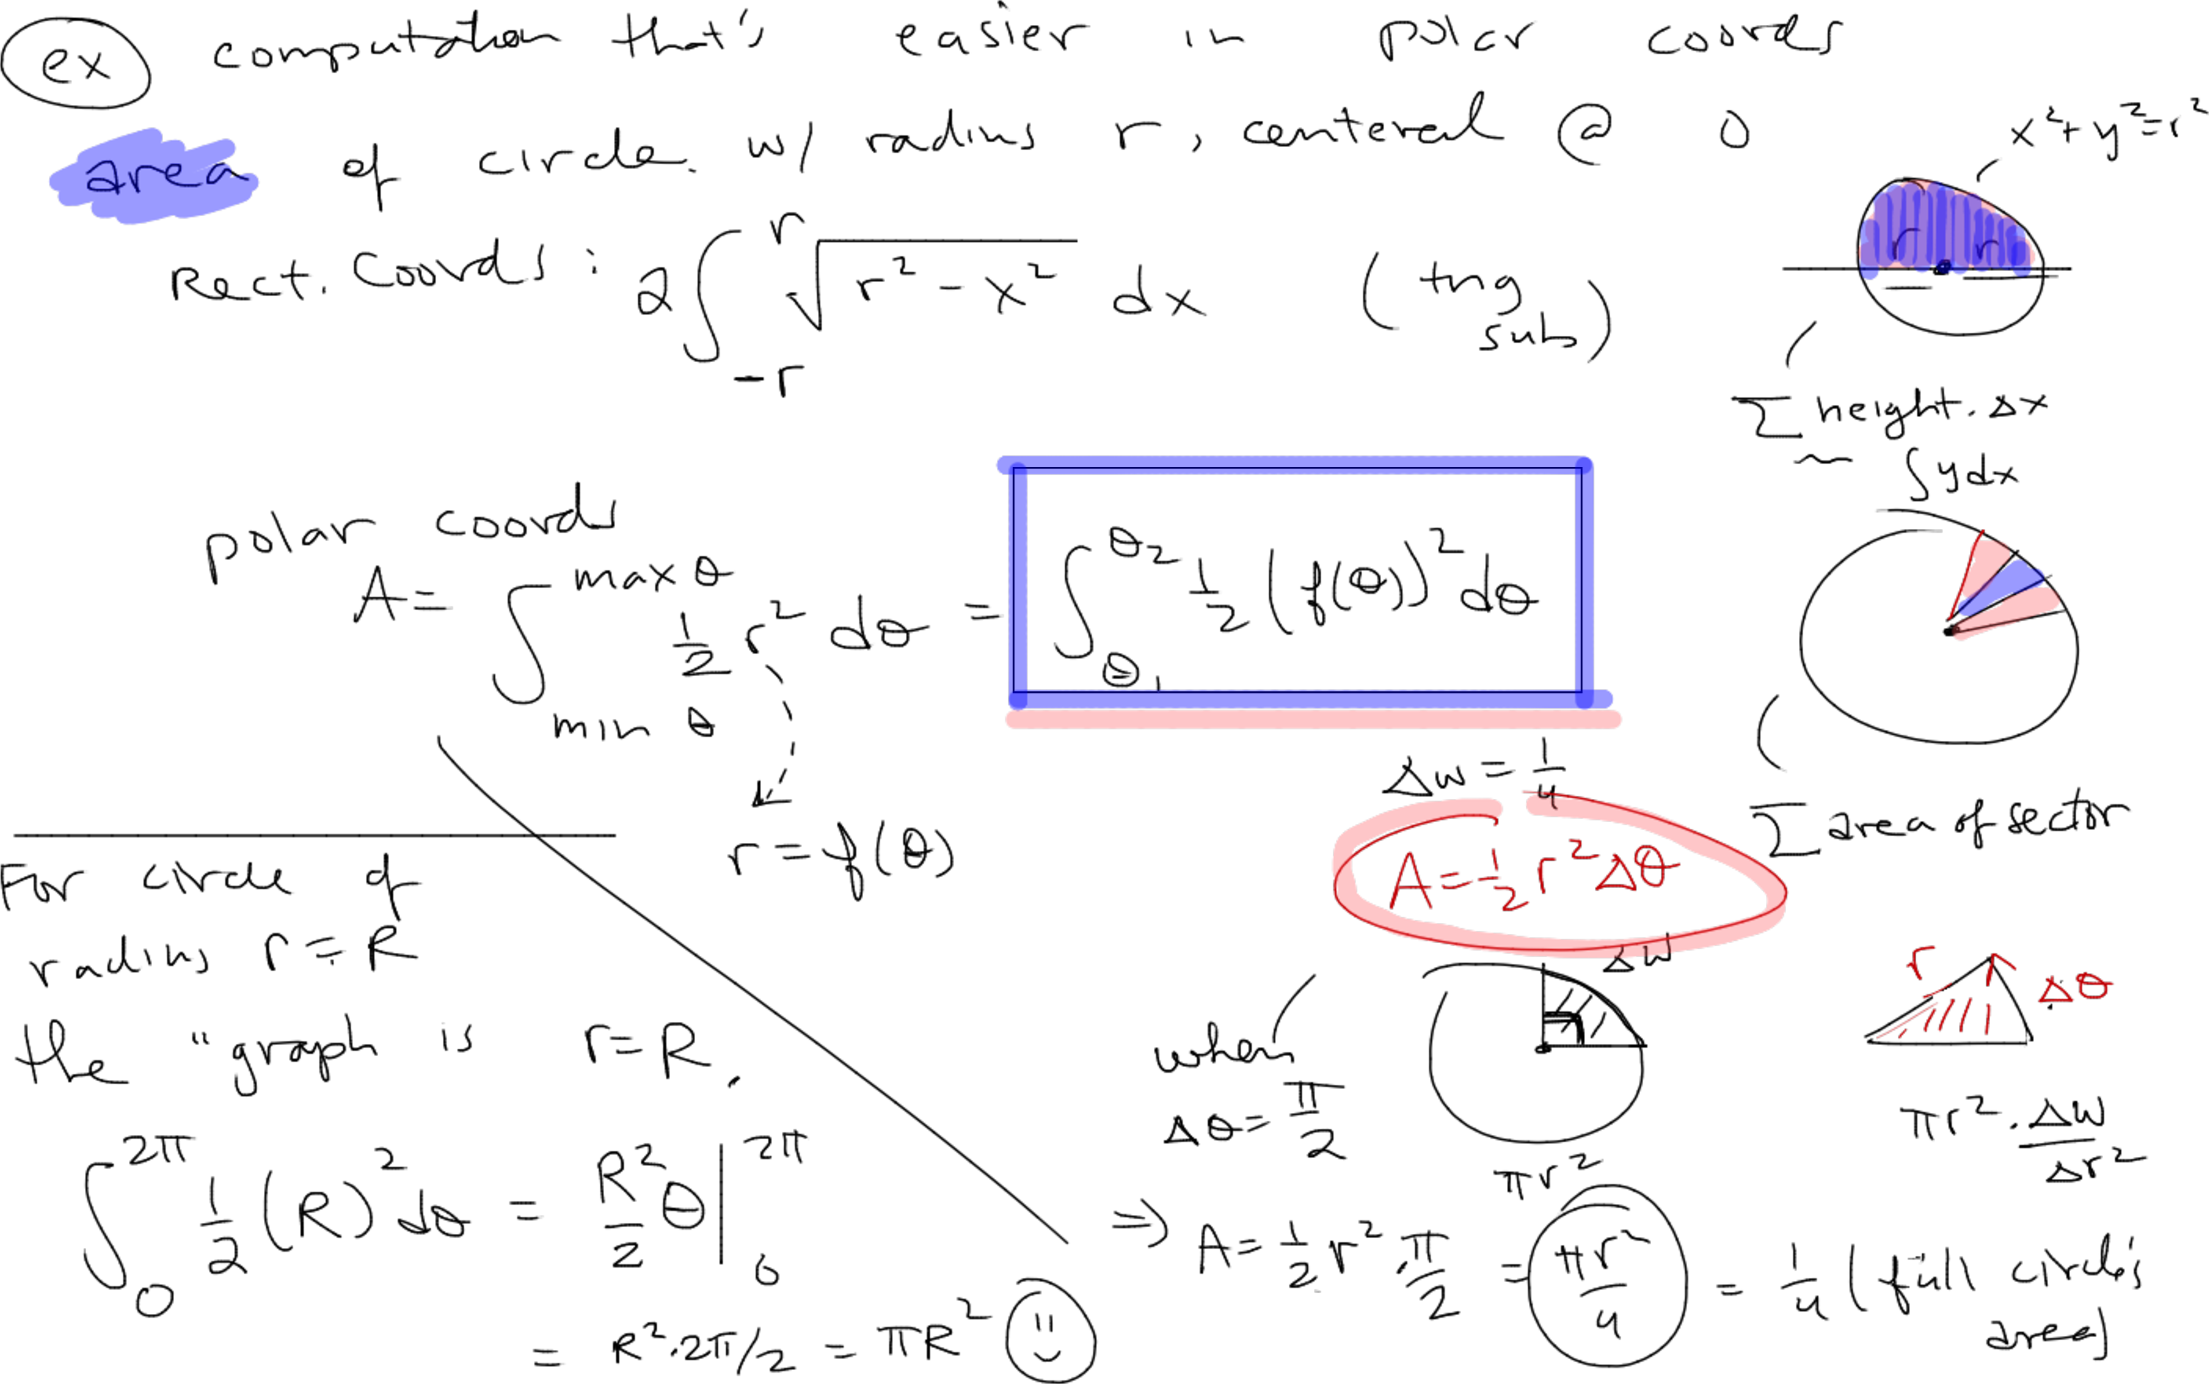 ex computation that's easier in polar coords
area of circle w/ radius r, centered @ 0
x² + y² = r²
Rect. Coords: 2∫_{-r}^{r} √(r² - x²) dx (trig sub)
r r
Σ height · Δx
~ ∫ y dx
polar coords
A = ∫_{min θ}^{max θ} 1/2 r² dθ = ∫_{θ₁}^{θ₂} 1/2 (f(θ))² dθ
r = f(θ)
Δw = 1/4
A = 1/2 r² Δθ
Σ area of sector
For circle of
radius r = R
the "graph is r = R.
∫_0^{2π} 1/2 (R)² dθ = R²/2 θ |_0^{2π}
= R²·2π/2 = πR²
Δw
r Δθ
when
Δθ = π/2
πr²
πr² · Δw/Δr²
⇒ A = 1/2 r² · π/2 = πr²/4 = 1/4 (full circle's
area)